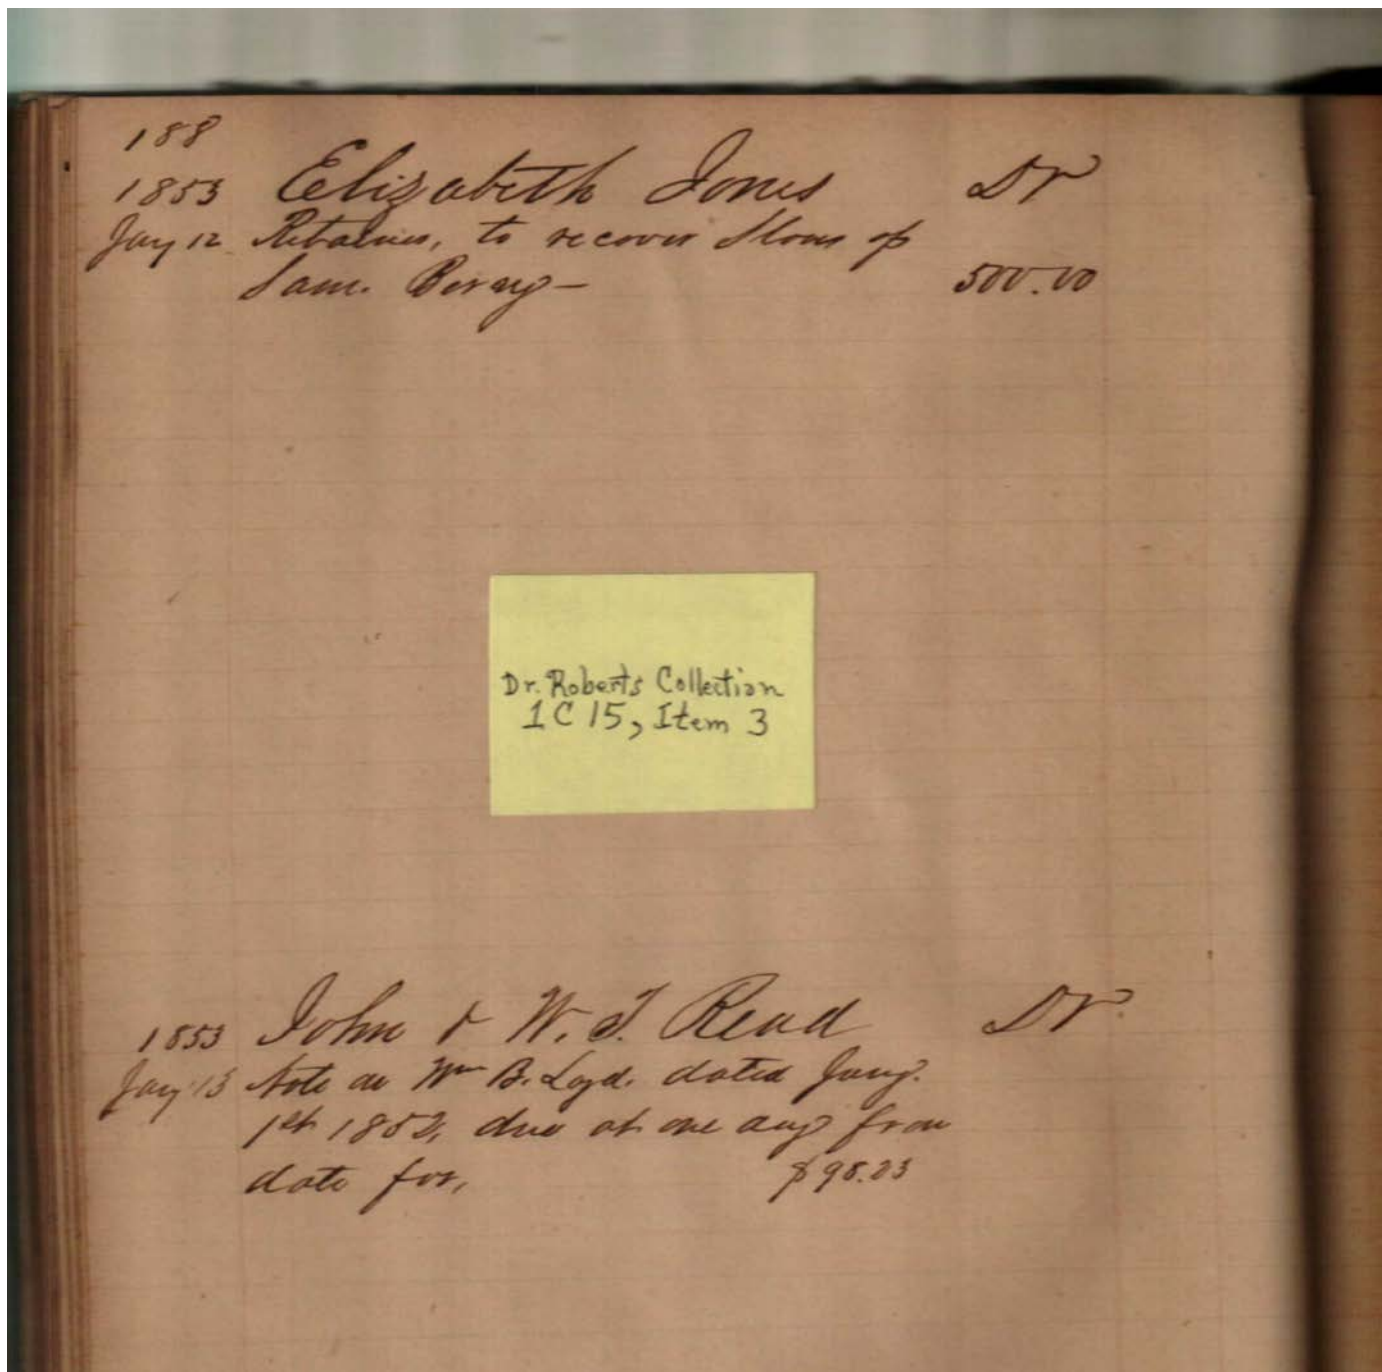 188
1853 Elizabeth Jones Dr
Jany 12 Retainer, to recover of
Sam. 500.00
Dr. Roberts Collection
1C15, Item 3
1853 John & W. T. Read Dr.
Jany 13 Note on Wm B. Loyd. dated Jany.
1st 1852, due at one day from
date for, $98.23